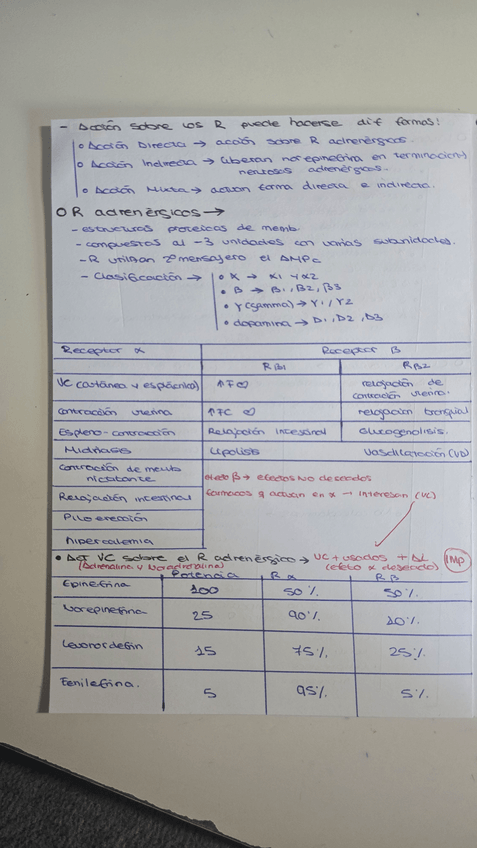 - Acción sobre los R puede hacerse dif formas:
◦ Acción Directa → acción sobre R adrenérgicos.
◦ Acción Indirecta → Liberan norepinefrina en terminaciones
nerviosas adrenérgicas.
◦ Acción Mixta → actuan forma directa e indirecta.
O R adrenérgicos →
- estructuras proteicas de memb.
- compuestas al -3 unidades con varias subunidades.
- R utilizan 2º mensajero el AMPc
- Clasificación → ◦ α → α1 y α2
◦ β → β1, β2, β3
◦ γ (gamma) → γ1 / γ2
◦ dopamina → D1, D2, D3
Receptor α Receptor β
Rβ1 Rβ2
VC cutánea y esplácnica) ↑ F♡ relajación de
contracción uterina.
contracción uterina ↑ FC ♡ relajación bronquial
Espleno-contracción Relajación intestinal Glucogenolisis.
Midriasis Lipolisis Vasodilatación (VD)
Contracción de memb
nicotante efecto β → efectos NO deseados
Relajación intestinal fármacos q actuan en α → interesan (VC)
Piloerección
Hipercalemia
• Act VC sobre el R adrenérgico → VC + usados + AL IMP
(Adrenalina y Noradrenalina) (efecto α deseado)
Potencia R α R β
Epinefrina 100 50% 50%
Norepinefrina 25 90% 10%
Levonordefrin 15 75% 25%
Fenilefrina. 5 95% 5%